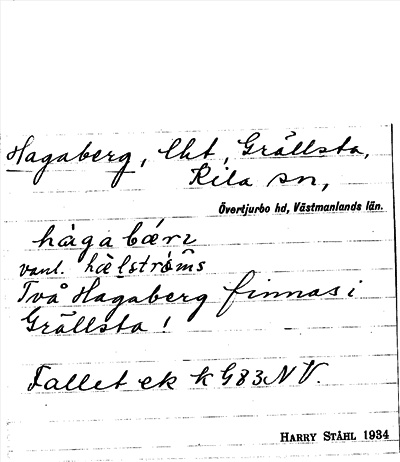 Hagaberg, lht, Grällsta,
Kila sn,
Övertjurbo hd, Västmanlands län.
hàgabǽrı
vanl. hǽlströ̀ms
Två Hagaberg finnas i
Grällsta!
Fallet ek k 983 NV.
HARRY STÅHL 1934